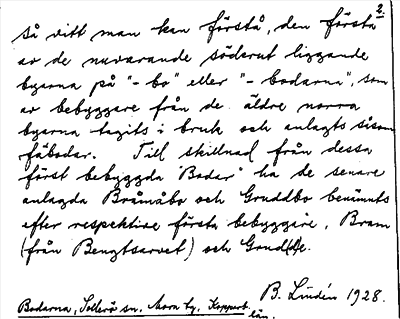 2.
så vitt man kan förstå, den första
av de nuvarande söderut liggande
byarna på "- bo" eller "- bodarna", som
av bebyggare från de äldre norra
byarna tagits i bruk och anlagts såsom
fäbodar. Till skillnad från dessa
först bebyggda "Bodar" ha de senare
anlagda Bråmåbo och Gruddbo benämnts
efter respektive första bebyggare, Bram
(från Bengtsarvet) och Grudde.
B. Lindén 1928.
Bodarna, Sollerö sn. Mora tg. Kopparb.
län.